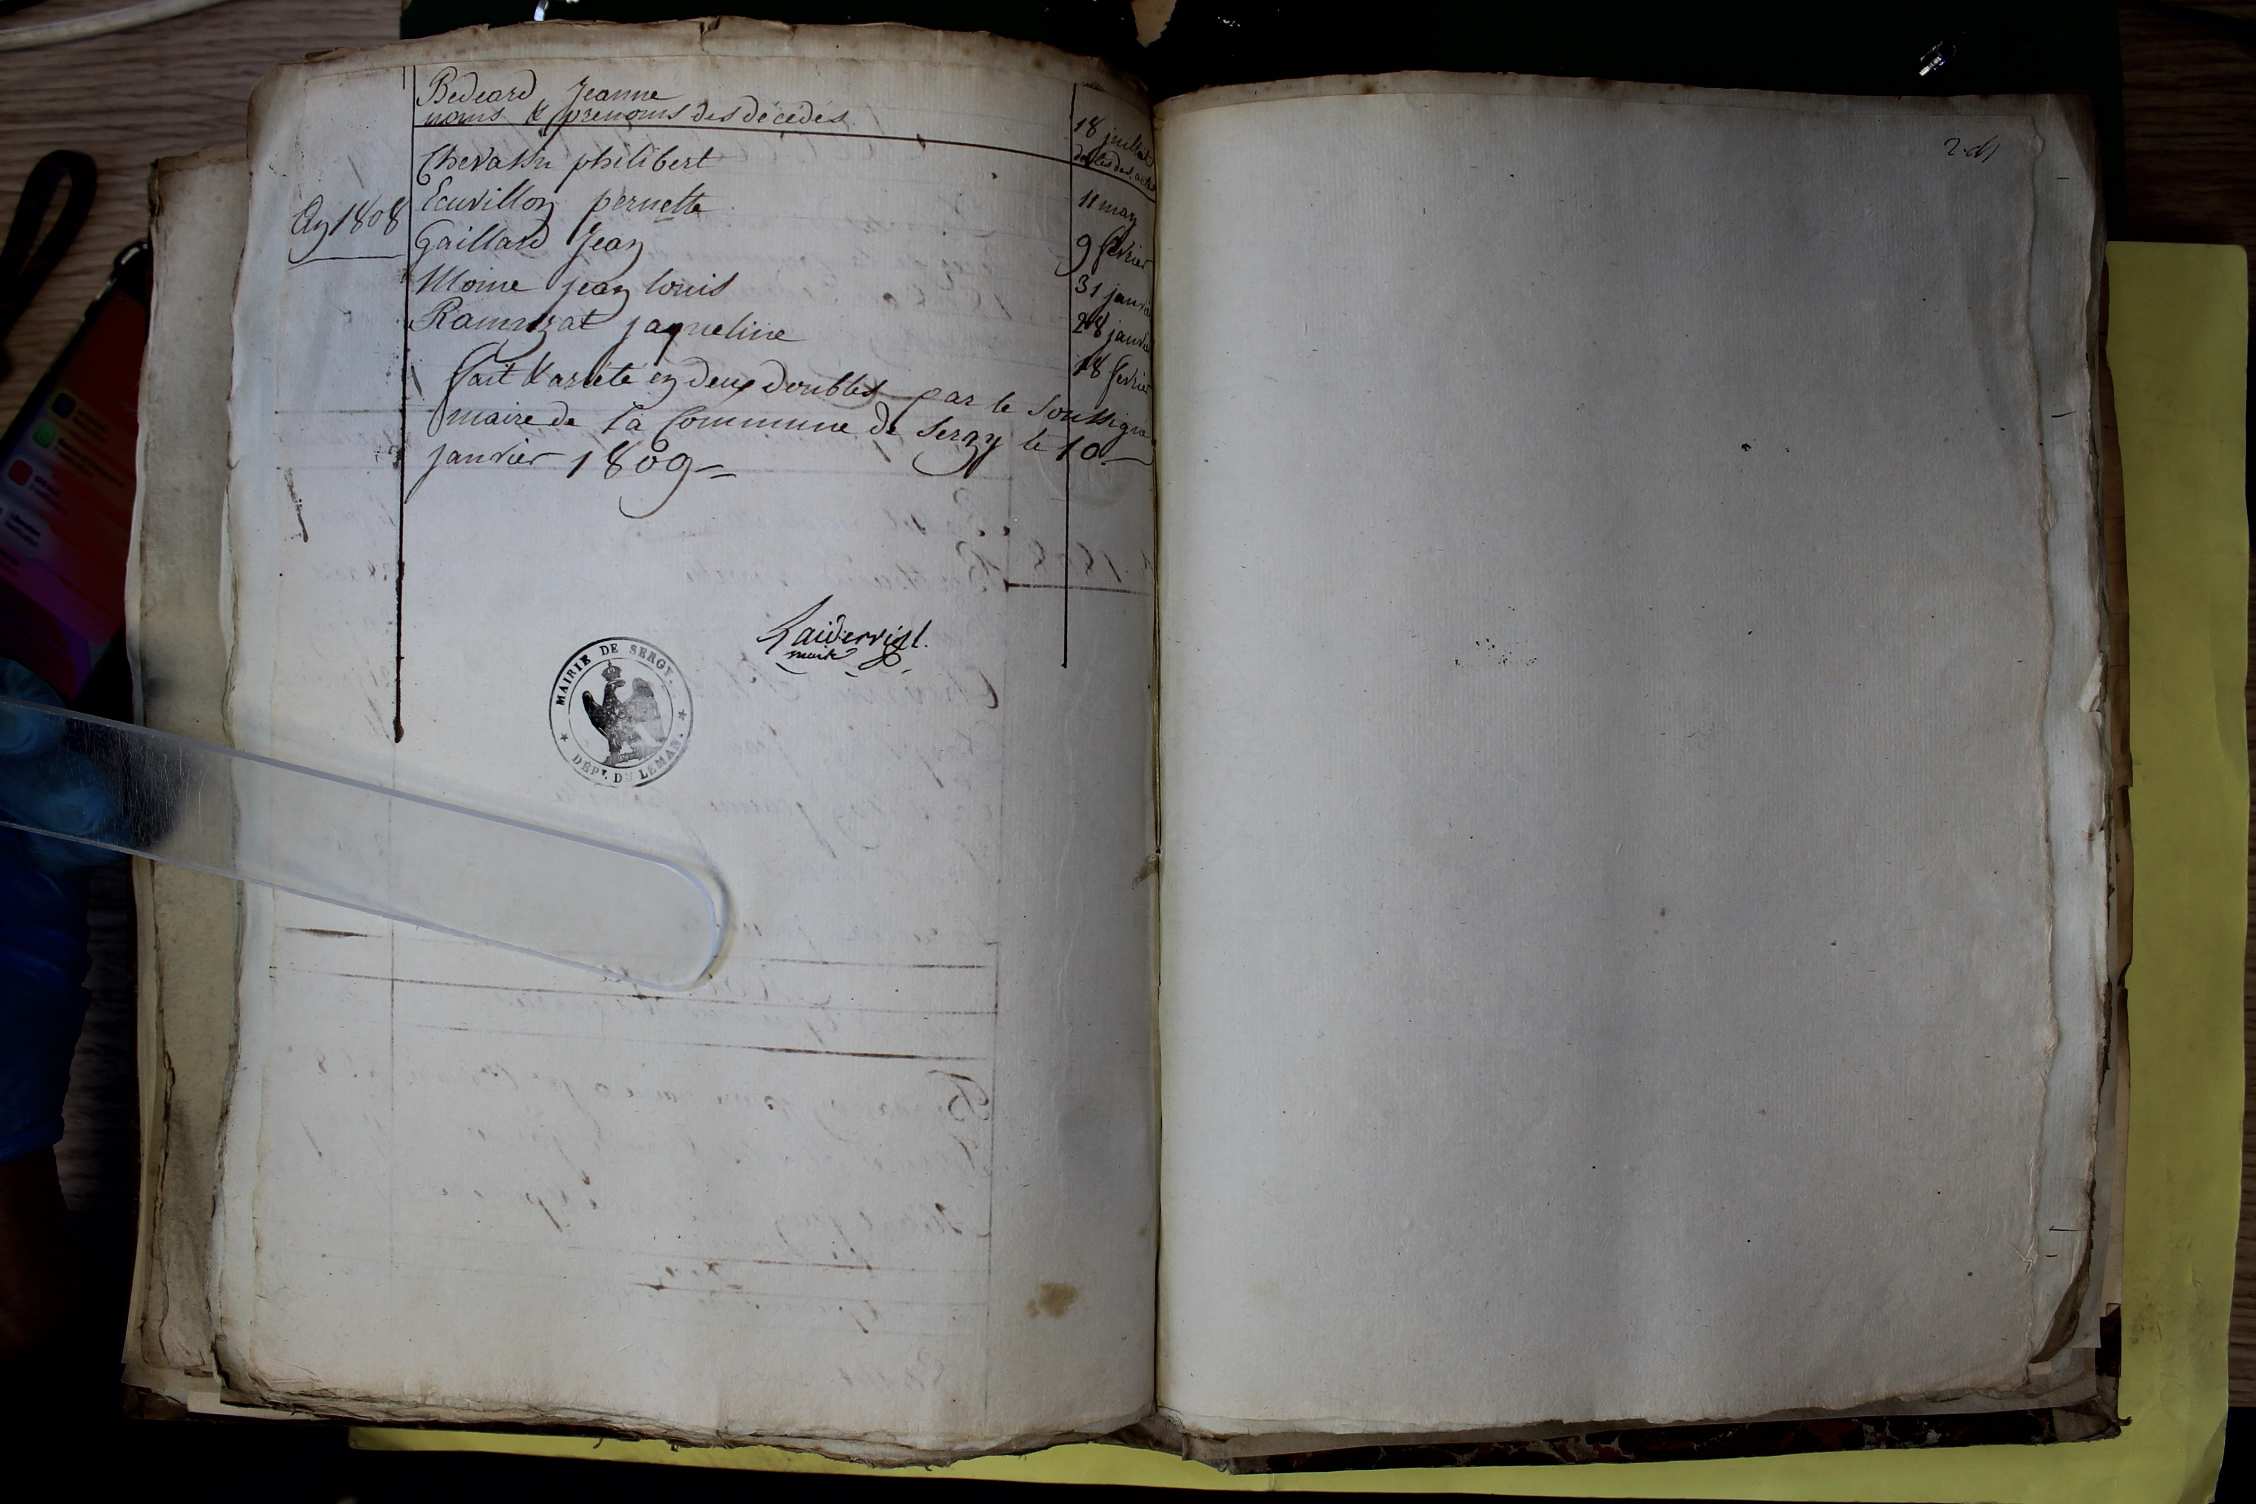 Bedeard Jeanne 18 juillet
noms & prenoms des décédés dattes des actes
Chevassu philibert 11 may
An 1808 Ecuvillon pernette 9 fevrier
Gaillard Jean 31 janvier
Moine jean louis 28 janvier
Ramuzat jaqueline 18 fevrier
fait & arrété en deux doubles par le soussigné
maire de La Commune de Sergy le 10
janvier 1809
maire
MAIRIE DE SERGY.
DÉPT. DU LÉMAN.